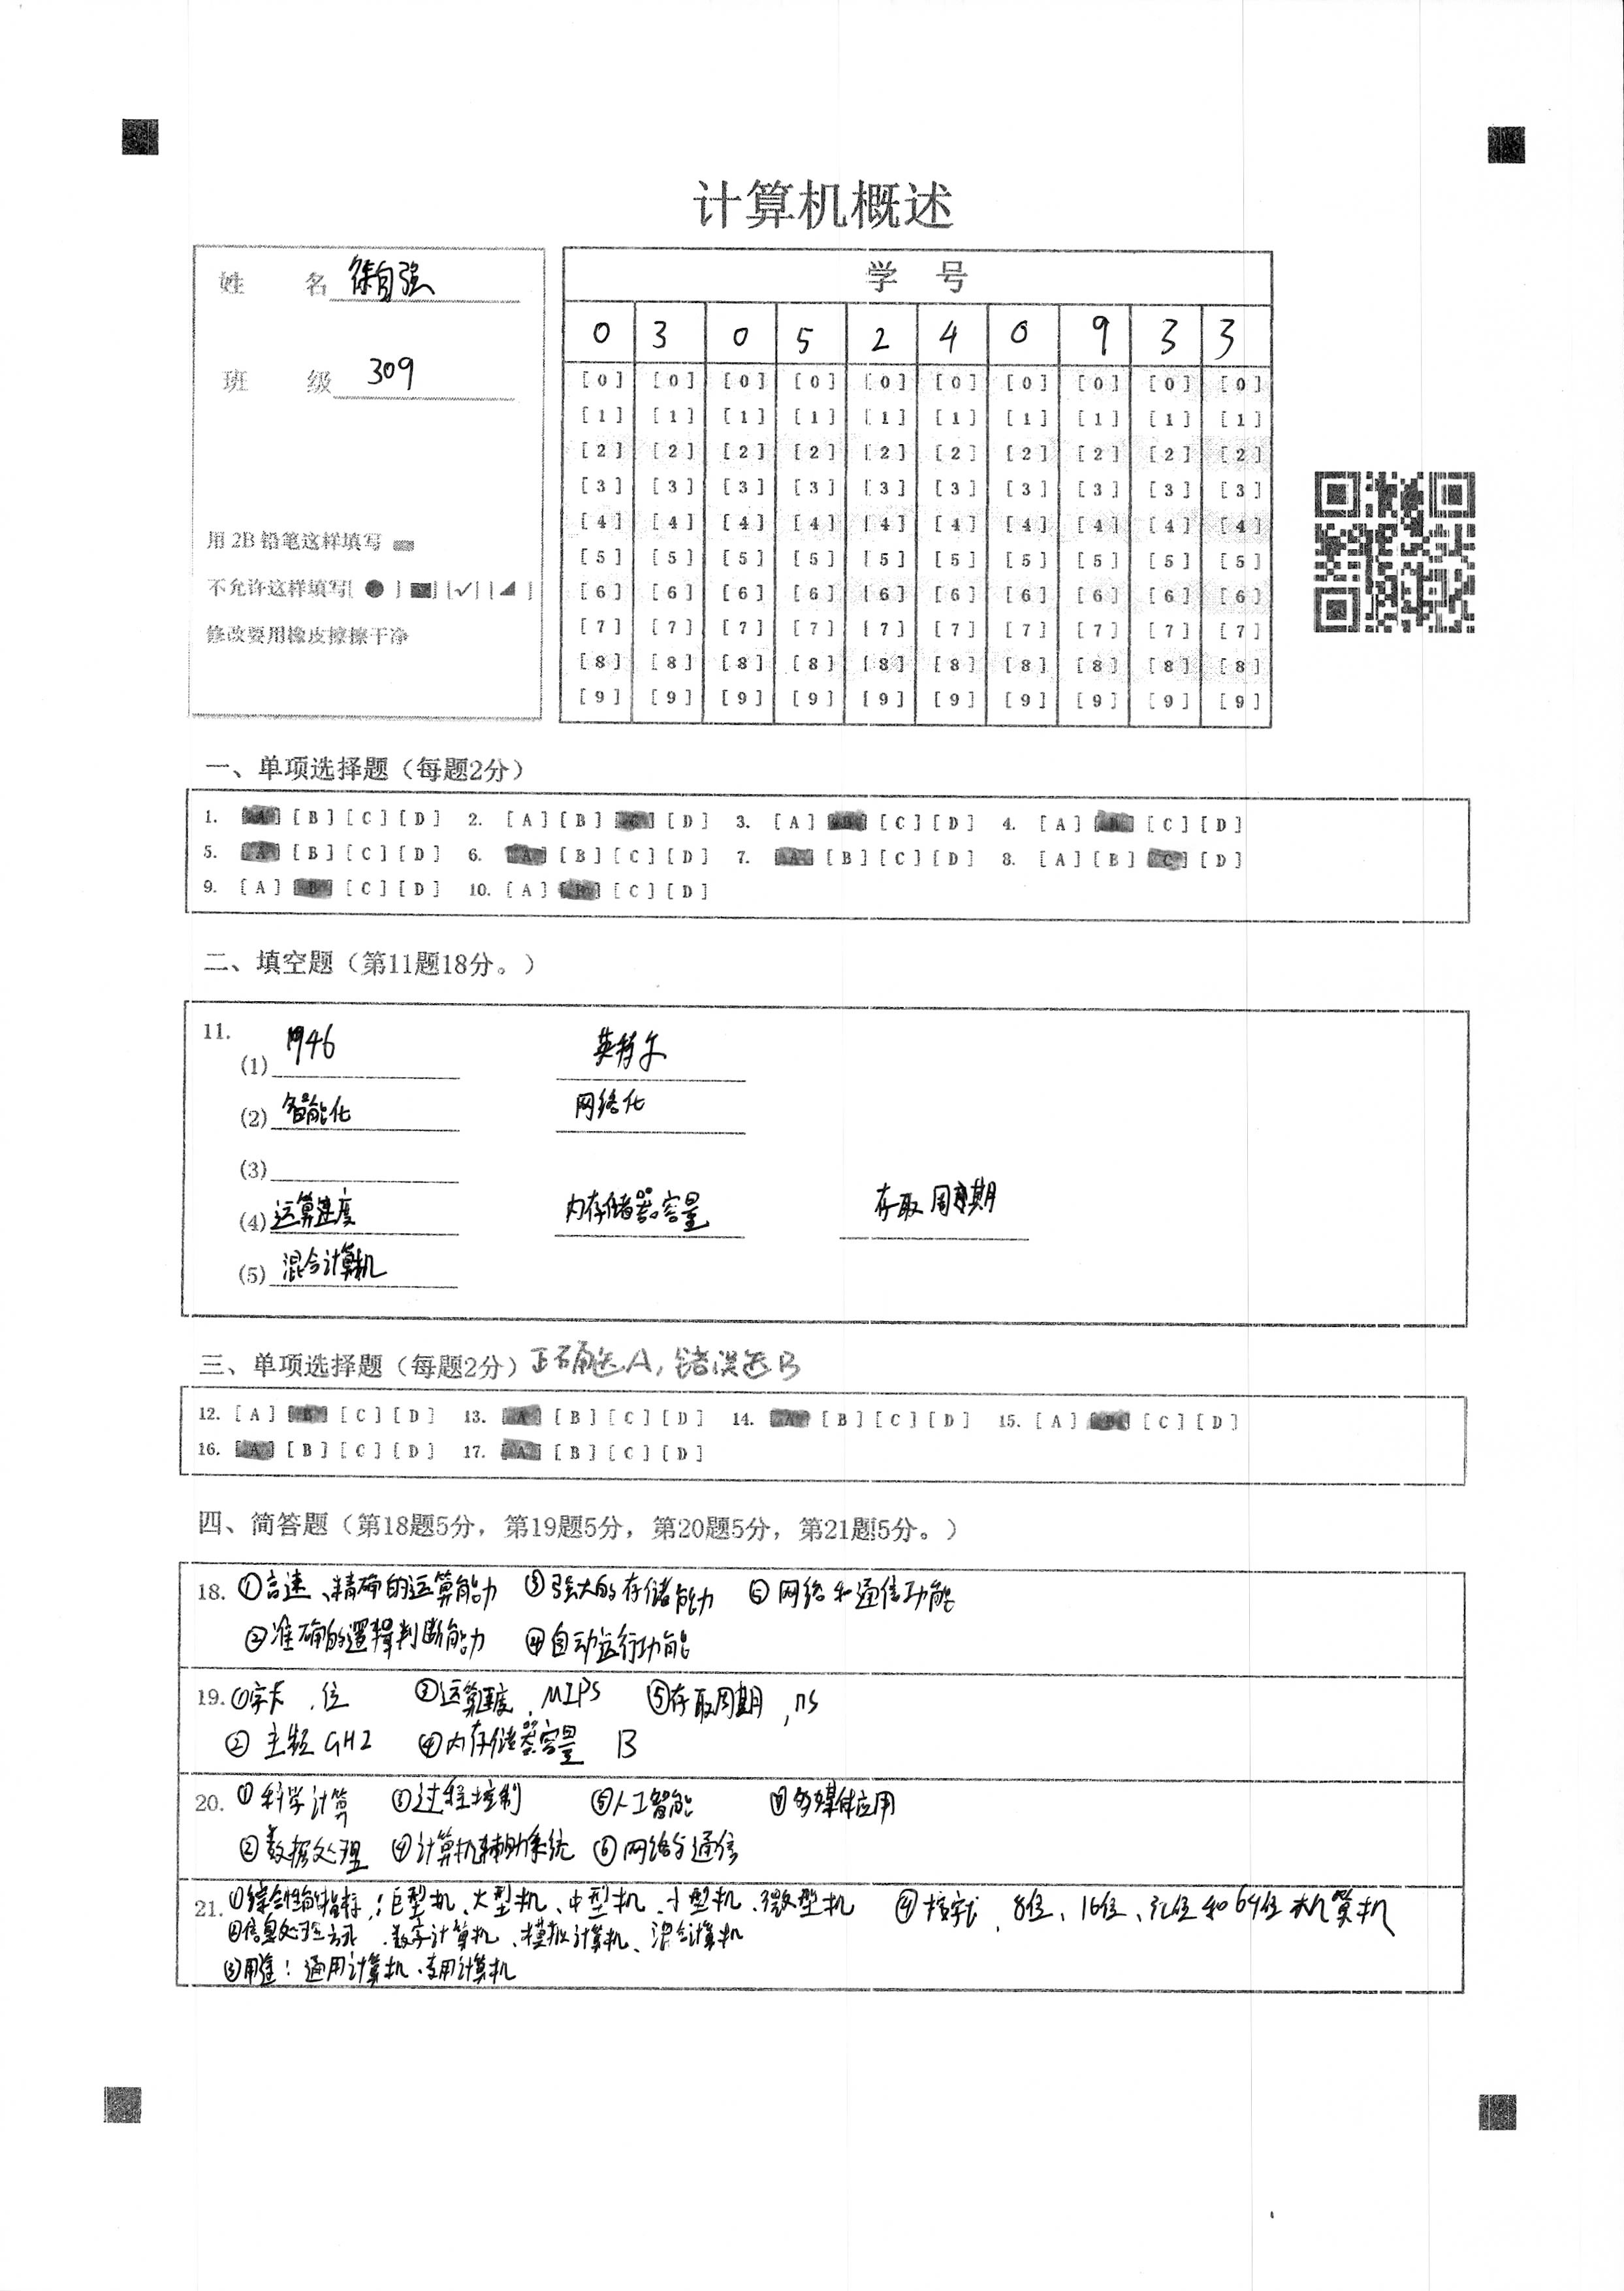 计算机概述
姓 名 徐自强
班 级 309
用 2B 铅笔这样填写
不允许这样填写[ ● ] [■] [✓] [◢ ]
修改要用橡皮擦擦干净
学 号
0 3 0 5 2 4 0 9 3 3
[0] [0] [0] [0] [0] [0] [0] [0] [0] [0]
[1] [1] [1] [1] [1] [1] [1] [1] [1] [1]
[2] [2] [2] [2] [2] [2] [2] [2] [2] [2]
[3] [3] [3] [3] [3] [3] [3] [3] [3] [3]
[4] [4] [4] [4] [4] [4] [4] [4] [4] [4]
[5] [5] [5] [5] [5] [5] [5] [5] [5] [5]
[6] [6] [6] [6] [6] [6] [6] [6] [6] [6]
[7] [7] [7] [7] [7] [7] [7] [7] [7] [7]
[8] [8] [8] [8] [8] [8] [8] [8] [8] [8]
[9] [9] [9] [9] [9] [9] [9] [9] [9] [9]
一、单项选择题（每题2分）
1. [A] [B] [C] [D] 2. [A] [B] [C] [D] 3. [A] [B] [C] [D] 4. [A] [B] [C] [D]
5. [A] [B] [C] [D] 6. [A] [B] [C] [D] 7. [A] [B] [C] [D] 8. [A] [B] [C] [D]
9. [A] [B] [C] [D] 10. [A] [B] [C] [D]
二、填空题（第11题18分。）
11.
(1) 1946 英特尔
(2) 智能化 网络化
(3)
(4) 运算速度 内存储器容量 存取周期
(5) 混合计算机
三、单项选择题（每题2分）正确选A，错误选B
12. [A] [B] [C] [D] 13. [A] [B] [C] [D] 14. [A] [B] [C] [D] 15. [A] [B] [C] [D]
16. [A] [B] [C] [D] 17. [A] [B] [C] [D]
四、简答题（第18题5分，第19题5分，第20题5分，第21题5分。）
18. ①高速、精确的运算能力 ③强大的存储能力 ⑤网络和通信功能
②准确的逻辑判断能力 ④自动运行功能
19. ①字长，位 ③运算速度，MIPS ⑤存取周期，ns
② 主频 GHZ ④内存储器容量 B
20. ①科学计算 ③过程控制 ⑤人工智能 ⑦多媒体应用
②数据处理 ④计算机辅助系统 ⑥网络与通信
21. ①综合性能指标：巨型机、大型机、中型机、小型机、微型机 ④按字长，8位、16位、32位和64位计算机
②信息处理方式，数字计算机、模拟计算机、混合计算机
③用途：通用计算机、专用计算机